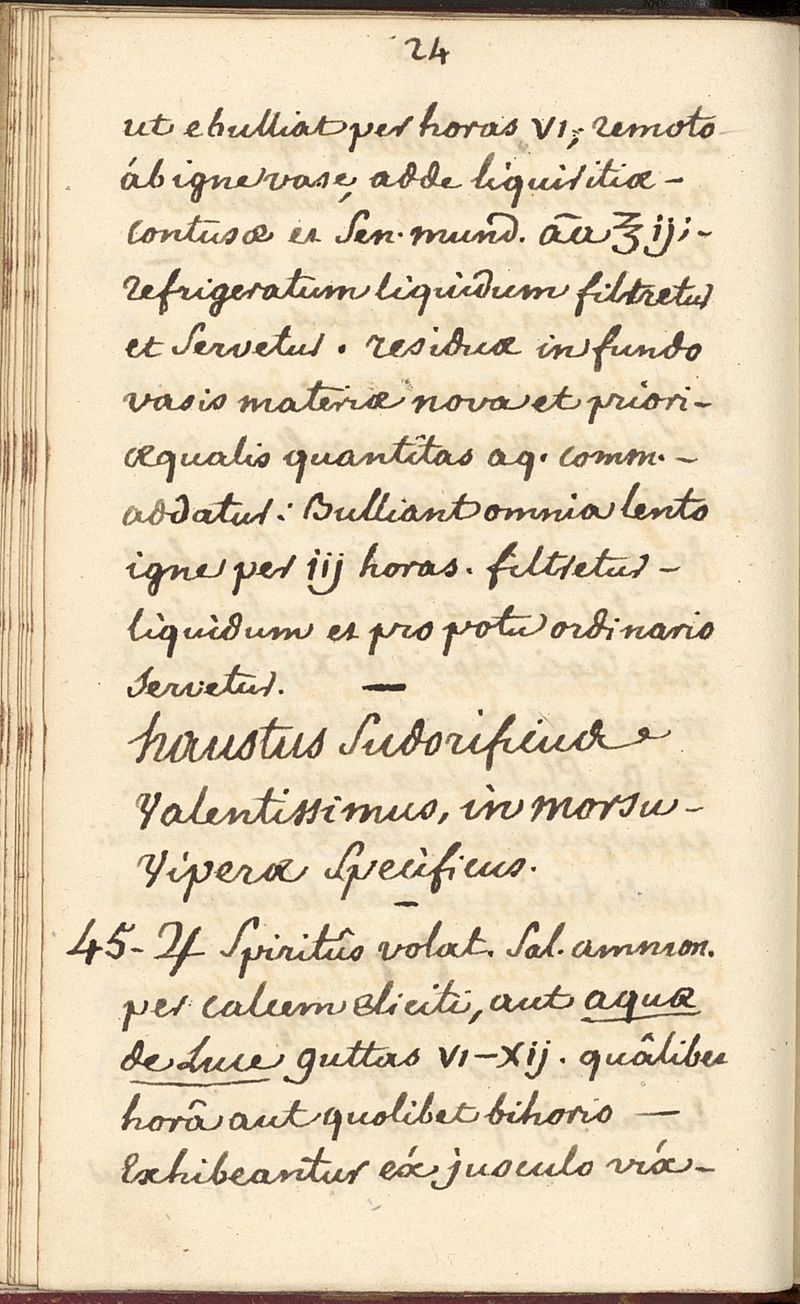 24
ut ebulliat per horas VI; remoto
áb igne vase, adde liquiritiæ -
contusæ et Sen. mund. āa ℥ ij; -
refrigeratum liquidum filtretur
et Servetur. residuæ in fundo
vasis materiæ nova et priori -
æqualis quantitas aq. comm. -
addatur: Bulliant omnia lento
igne per iij horas. filtretur -
liquidum et pro potu ordinario
Servetur. —
haustus Sudorificus
Valentissimus, in morsu -
Viperæ Specificus.
45 - ♃ Spiritûs volat. Sal. ammon.
per calcem eliciti, aut aquæ
de Luce guttas VI - XIj. quâlibet
horâ aut quolibet bihorio —
Exhibeantur ex jusculo vix -